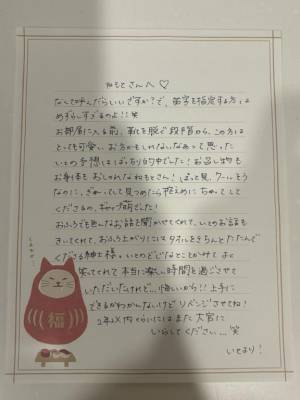 ねもとさんへ♡
なんて呼んだらいいですか?で、苗字を指定する方は
めずらしすぎるのよ!!笑
お部屋に入る前、靴を脱ぐ段階から、この方は
とっても可愛いお方かもしれないなぁって思った
いとの予想はばっちり的中でした!お召し物も
お身体もおしゃれなねもとさん!ぱっと見、クールそう
なのに、ぎゅーってして見つめたら控えめにちゅーして
くださるの、ギャップ萌でした!
おふろでも色んなお話を聞かせてくれて、いとのお話も
きいてくれて、おふろ上がりにはタオルをきちんとたたんで
くださる紳士様。いとのどじなとこみかけて、よく
笑ってくれて本当に楽しい時間を過ごさせて
いただいたけれど…悔しいから!!上手に
できるかわかんないけどリベンジさせてね!
2年以内くらいにはまた大宮に
いらしてください…笑
いとより!
福